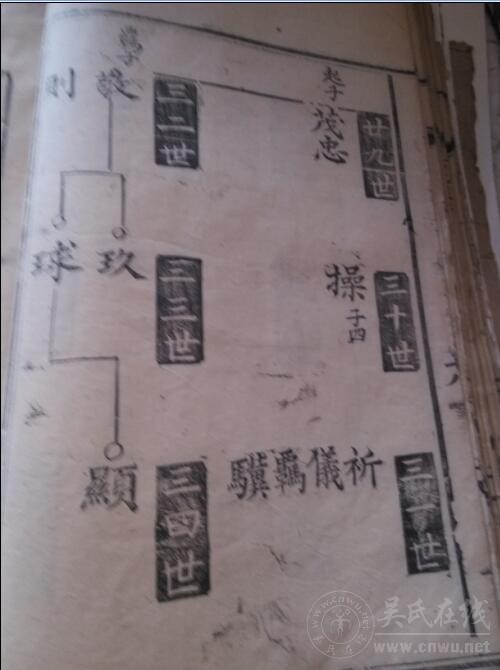 廿九世
起子茂忠
三十世
操子四
三一世
祈儀羈驥
三二世
則
三三世
玖球
三四世
顯
吴氏在线
www.cnwu.net